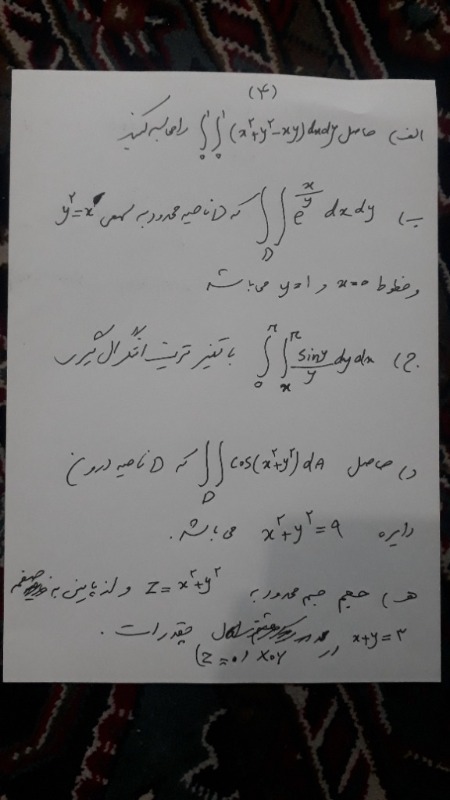 (۴)
الف) حاصل ∫₀¹ ∫₀¹ (x²+y²-xy) dxdy را محاسبه کنید
ب) ∬_D e^(x/y) dxdy که D ناحیه محدود به سهمی y²=x
و خطوط x=0 و y=1 می باشد
ج) ∫₀^π ∫ₓ^π (sin y / y) dydx با تغییر ترتیب انتگرال گیری
د) حاصل ∬_D cos(x²+y²) dA که D ناحیه درون
دایره x²+y²=9 می باشد.
هـ) حجم جسم محدود به z=x²+y² و از پایین به
x+y=3 در چقدر است.
(z=0) xoy